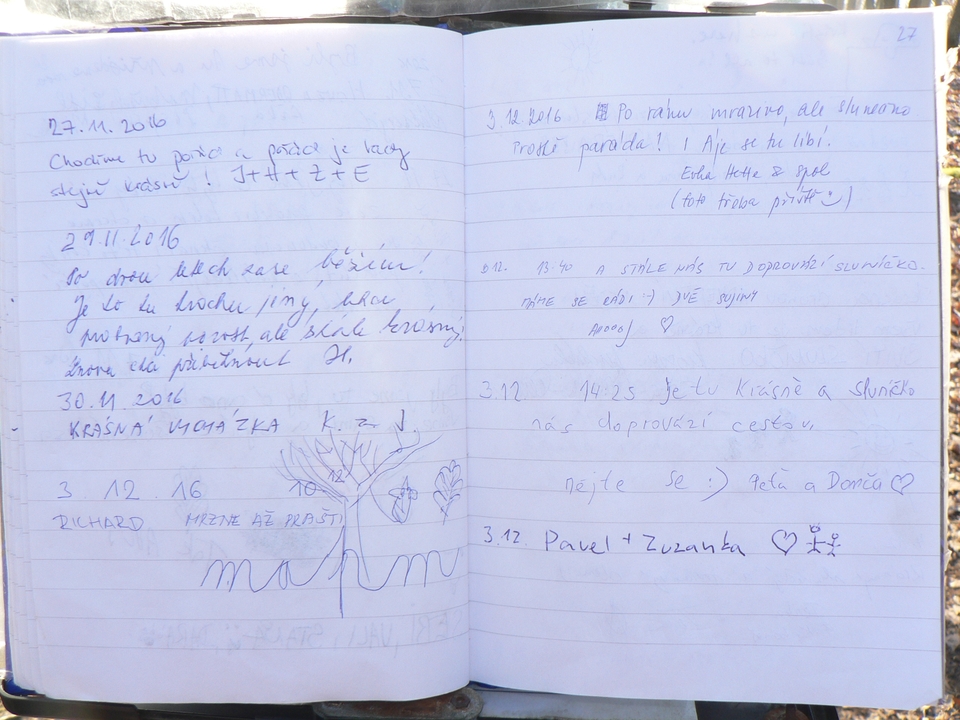 27.11.2016
Chodíme tu pořád a pořád je tady
stejně krásně! J+H+Z+E
29.11.2016
Po dvou letech zase běžím!
Je to tu trochu jiný,
porost, ale stále krásný!
Znova
30.11.2016
KRÁSNÁ K. z J.
3. 12. 16 10 12
RICHARD MRZNE AŽ PRAŠTÍ
27
3.12.2016 Po ránu mrazivo, ale slunečno
Prostě paráda! I Áje se tu líbí.
Evka & spol
(foto třeba příště :))
3.12. 13:40 A STÁLE NÁS TU DOPROVÁZÍ SLUNÍČKO.
MÁME SE RÁDI :) DVĚ
Ahooj ♡
3.12 14:25 Je tu Krásně a sluníčko
nás doprovází cestou.
mějte se :) Peťa a Donča ♡
3.12. Pavel + Zuzanka ♡